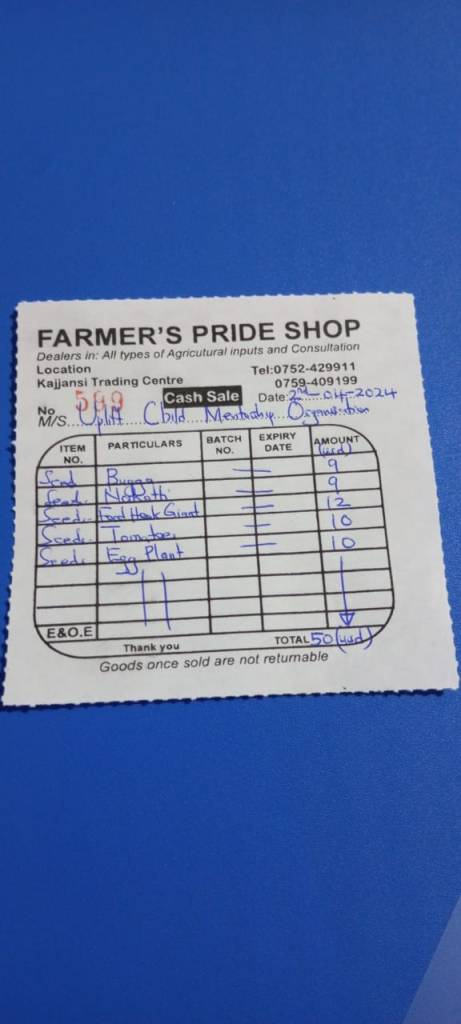 FARMER'S PRIDE SHOP
Dealers in: All types of Agricutural inputs and Consultation
Location Tel:0752-429911
Kajjansi Trading Centre 0759-409199
No 599 Cash Sale Date: 2nd-04-2024
M/S. Uplift Child Mentorship Organisation
ITEM NO. PARTICULARS BATCH NO. EXPIRY DATE AMOUNT (usd)
Seed 9
Seed Nakati 9
Seed Giant 12
Seed Tomatoes 10
Seed Egg Plant 10
E&O.E TOTAL 50 (usd)
Thank you
Goods once sold are not returnable